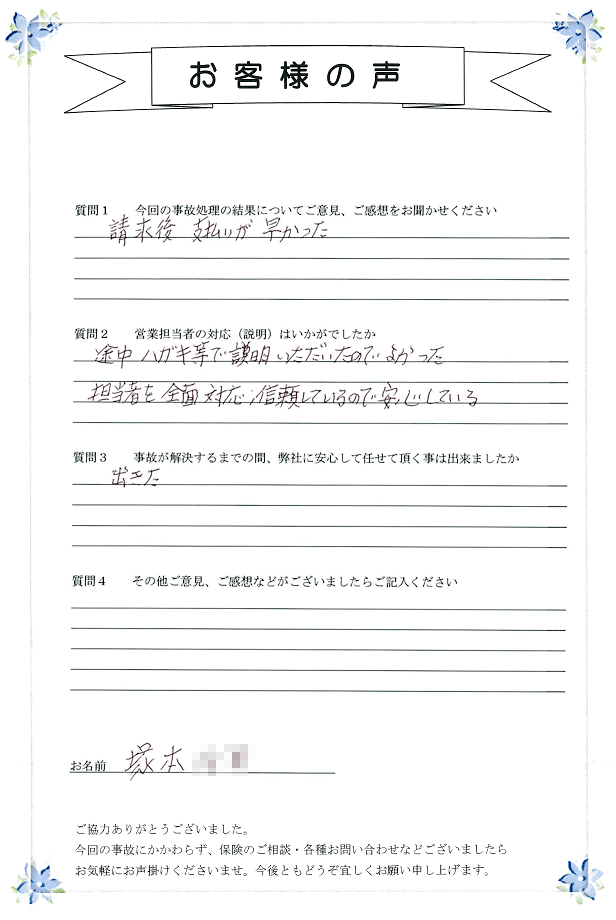 お客様の声
質問1 今回の事故処理の結果についてご意見、ご感想をお聞かせください
請求後 支払いが 早かった
質問2 営業担当者の対応(説明)はいかがでしたか
途中 ハガキ等で説明いただいたのでよかった
担当者を全面対応;信頼しているので安心している
質問3 事故が解決するまでの間、弊社に安心して任せて頂く事は出来ましたか
出来た
質問4 その他ご意見、ご感想などがございましたらご記入ください
お名前 塚本
ご協力ありがとうございました。
今回の事故にかかわらず、保険のご相談・各種お問い合わせなどございましたら
お気軽にお声掛けくださいませ。今後ともどうぞ宜しくお願い申し上げます。